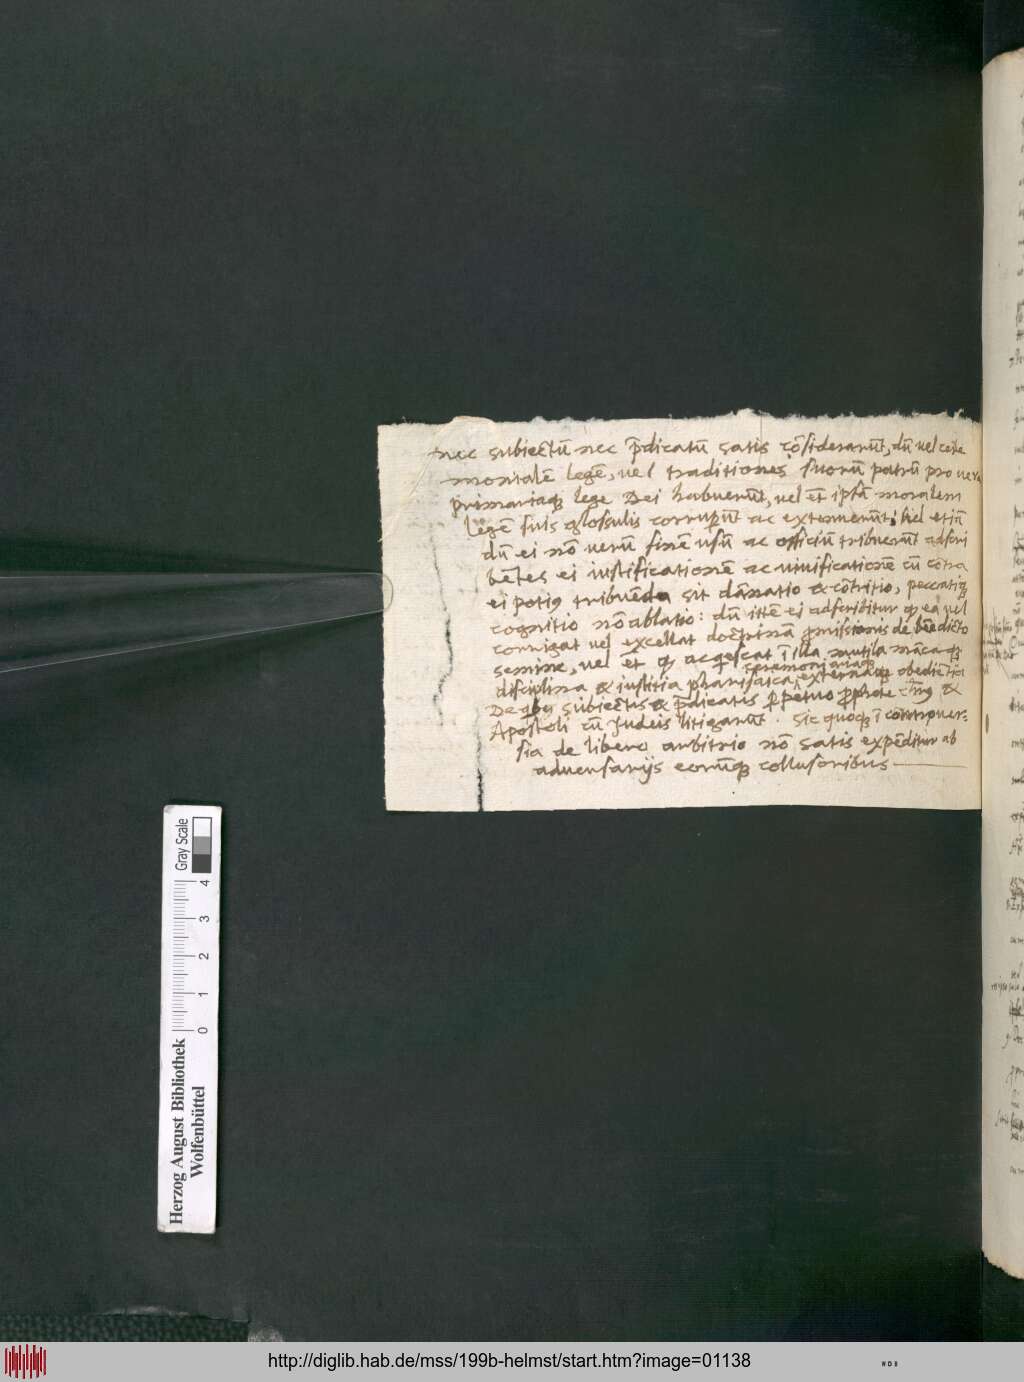 nec subiectū nec p̄dicatū satis cōsiderarūt, dū vel cere
monialē legē, vel traditiones suorū patrū pro vera
primariaq3 lege Dei habuerūt, vel et̄ ip̄sā moralem
legē suis glossulis corrupūt ac extenuerūt: vel etiā
dū ei nō verū finē usū ac officiū tribuerūt adscri
bētes ei iustificationē ac vivificationē cū cōtra
ei potiꝯ tribuēda sit dānatio & cōtritio, peccatiq3
cognitio nō ablatio: dū itē ei adscribitur qd ea vel
corrigat vel excellat doctrinā promissionis de bn̄edicto
semine, vel et̄ qd acqescat ī illa mutila māca q3
ceremoniariaq3
disciplina & iustitia pharisaica, externaq3 obediētia
De qbus subiectis & p̄dicatis perpetuo prophete &
Apostoli cū Judeis litigarūt. Sic quoq3 ī controver:
sia de libero arbitrio nō satis expēditur ab
adversarijs eorūq3 collusoribus
Herzog August Bibliothek
Wolfenbüttel
0 1 2 3 4
Gray Scale
http://diglib.hab.de/mss/199b-helmst/start.htm?image=01138